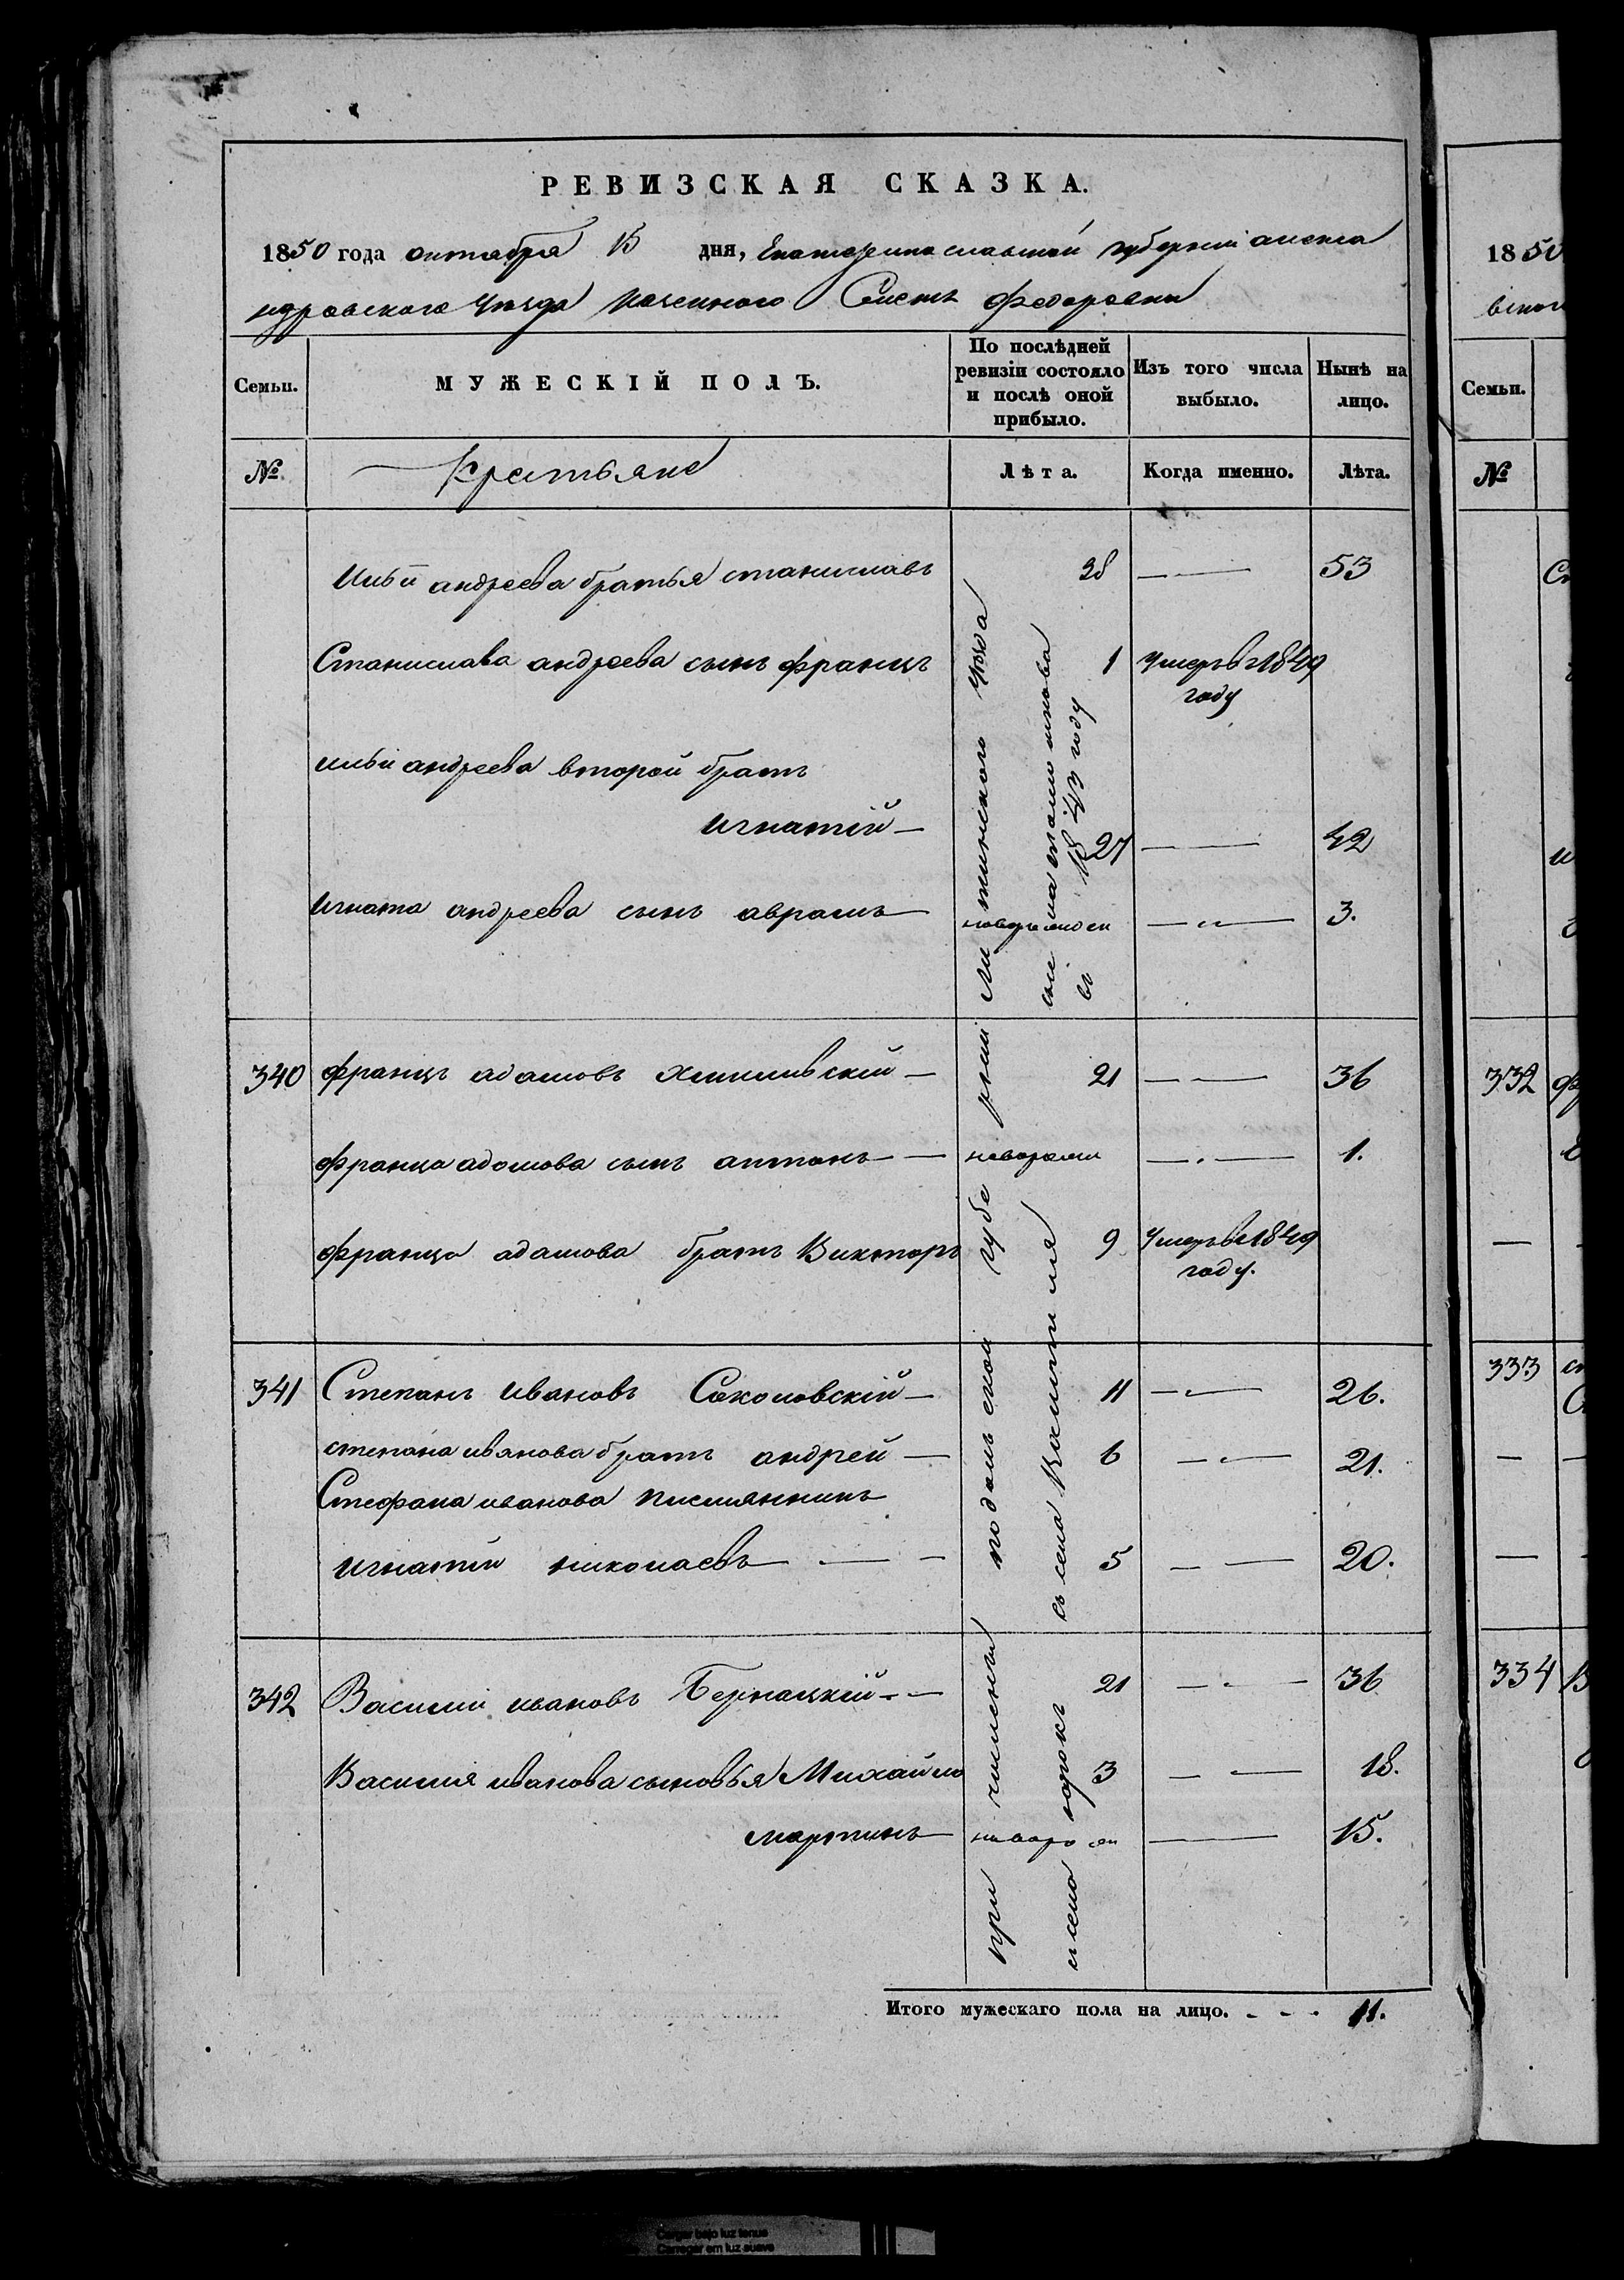 РЕВИЗСКАЯ СКАЗКА.
1850 года октября 15 дня, Екатеринославской губерніи алекса
ндровского уѣзда казенного Селенія Федоровки
Семьи.
МУЖЕСКІЙ ПОЛЪ.
По послѣдней ревизіи состояло и послѣ оной прибыло.
Изъ того числа выбыло.
Нынѣ на лицо.
№
Крестьяне
Лѣта.
Когда именно.
Лѣта.
Ильи андреева братья станиславъ 38 — — 53
Станислава андреева сынъ францъ 1 Умеръ в 1849
году
ильи андреева второй братъ
игнатій — 27 — — 42
игната андреева сынъ аврамъ новорожден — „ — 3.
340 францъ адамовъ Хмилевскій — 21 — — 36
франца адамова сынъ антонъ — — новорожден — . — 1.
франца адамова братъ Викторъ 9 Умеръ в 1849
году.
341 Степанъ ивановъ Соколовскій — 11 — — 26.
степана иванова братъ андрей — 6 — — 21.
Стефана иванова племянникъ
игнатій николаевъ — — 5 — — 20.
342 Василій ивановъ Бернацкій - — 21 — — 36
Василія иванова сыновья Михайло 3 — — 18.
мартинъ — новорожден — 15.
причислены подольской губерніи уѣзда
съ села
въ 1843 году
Итого мужескаго пола на лицо. - - - 11.
1850
Семьи.
№
332
333
334